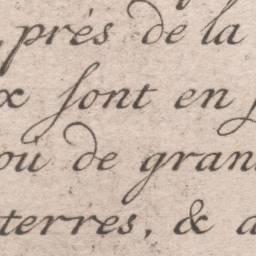 , prés de la
x sont en
où de gran
terres, & d